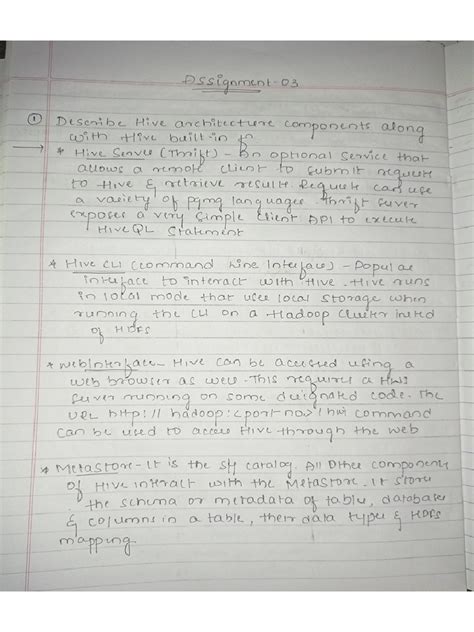 Assignment-03
① Describe Hive architecture components along
with Hive built-in fn
→ * Hive Server (Thrift) - An optional service that
allows a remote client to submit request
to Hive & retrieve result. Request can use
a variety of pgmg languages. Thrift server
exposes a very simple client API to execute
HiveQL Statement
* Hive CLI (command Line Interface) - Popular
interface to interact with Hive. Hive runs
in local mode that uses local storage when
running the CLI on a Hadoop cluster instead
of HDFS
* Web Interface - Hive can be accessed using a
web browser as well. This requires a HWI
server running on some designated code. The
URL http:// hadoop:<port no>/hwi command
can be used to access Hive through the web
* Metastore - It is the catalog. All Other components
of Hive interact with the Metastore. It stores
the schema or metadata of tables, databases
& columns in a table, their data types & HDFS
mapping.